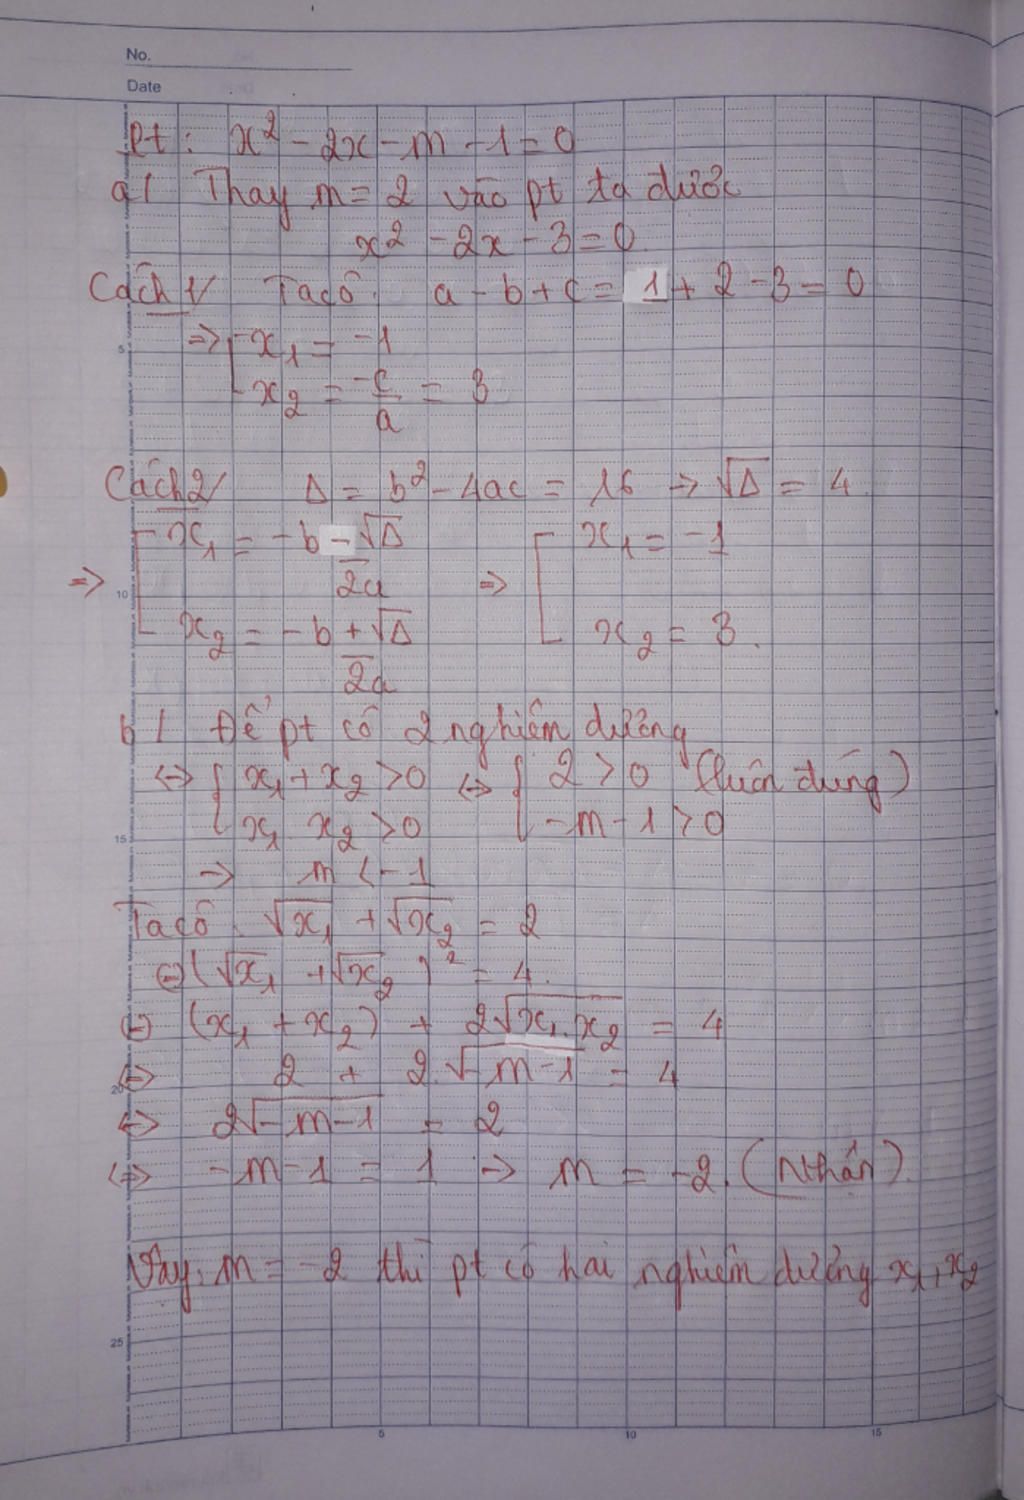 No.
Date
pt: x² - 2x - m - 1 = 0
a/ Thay m = 2 vào pt ta được
x² - 2x - 3 = 0
Cách 1/ Ta có: a - b + c = 1 + 2 - 3 = 0
=> [ x₁ = -1
x₂ = -c/a = 3
5
Cách 2/ Δ = b² - 4ac = 16 → √Δ = 4
=> [ x₁ = (-b - √Δ)/2a => [ x₁ = -1
10
x₂ = (-b + √Δ)/2a x₂ = 3.
b/ Để pt có 2 nghiệm dương
<=> { x₁ + x₂ > 0 <=> { 2 > 0 (luôn đúng)
x₁ . x₂ > 0 - m - 1 > 0
15
=> m < -1
Ta có: √x₁ + √x₂ = 2
<=> (√x₁ + √x₂)² = 4.
<=> (x₁ + x₂) + 2√x₁.x₂ = 4
<=> 2 + 2.√-m-1 = 4
20
<=> 2√-m-1 = 2
<=> -m-1 = 1 => m = -2. (Nhận).
Vậy: m = -2 thì pt có hai nghiệm dương x₁, x₂
25
5 10 15